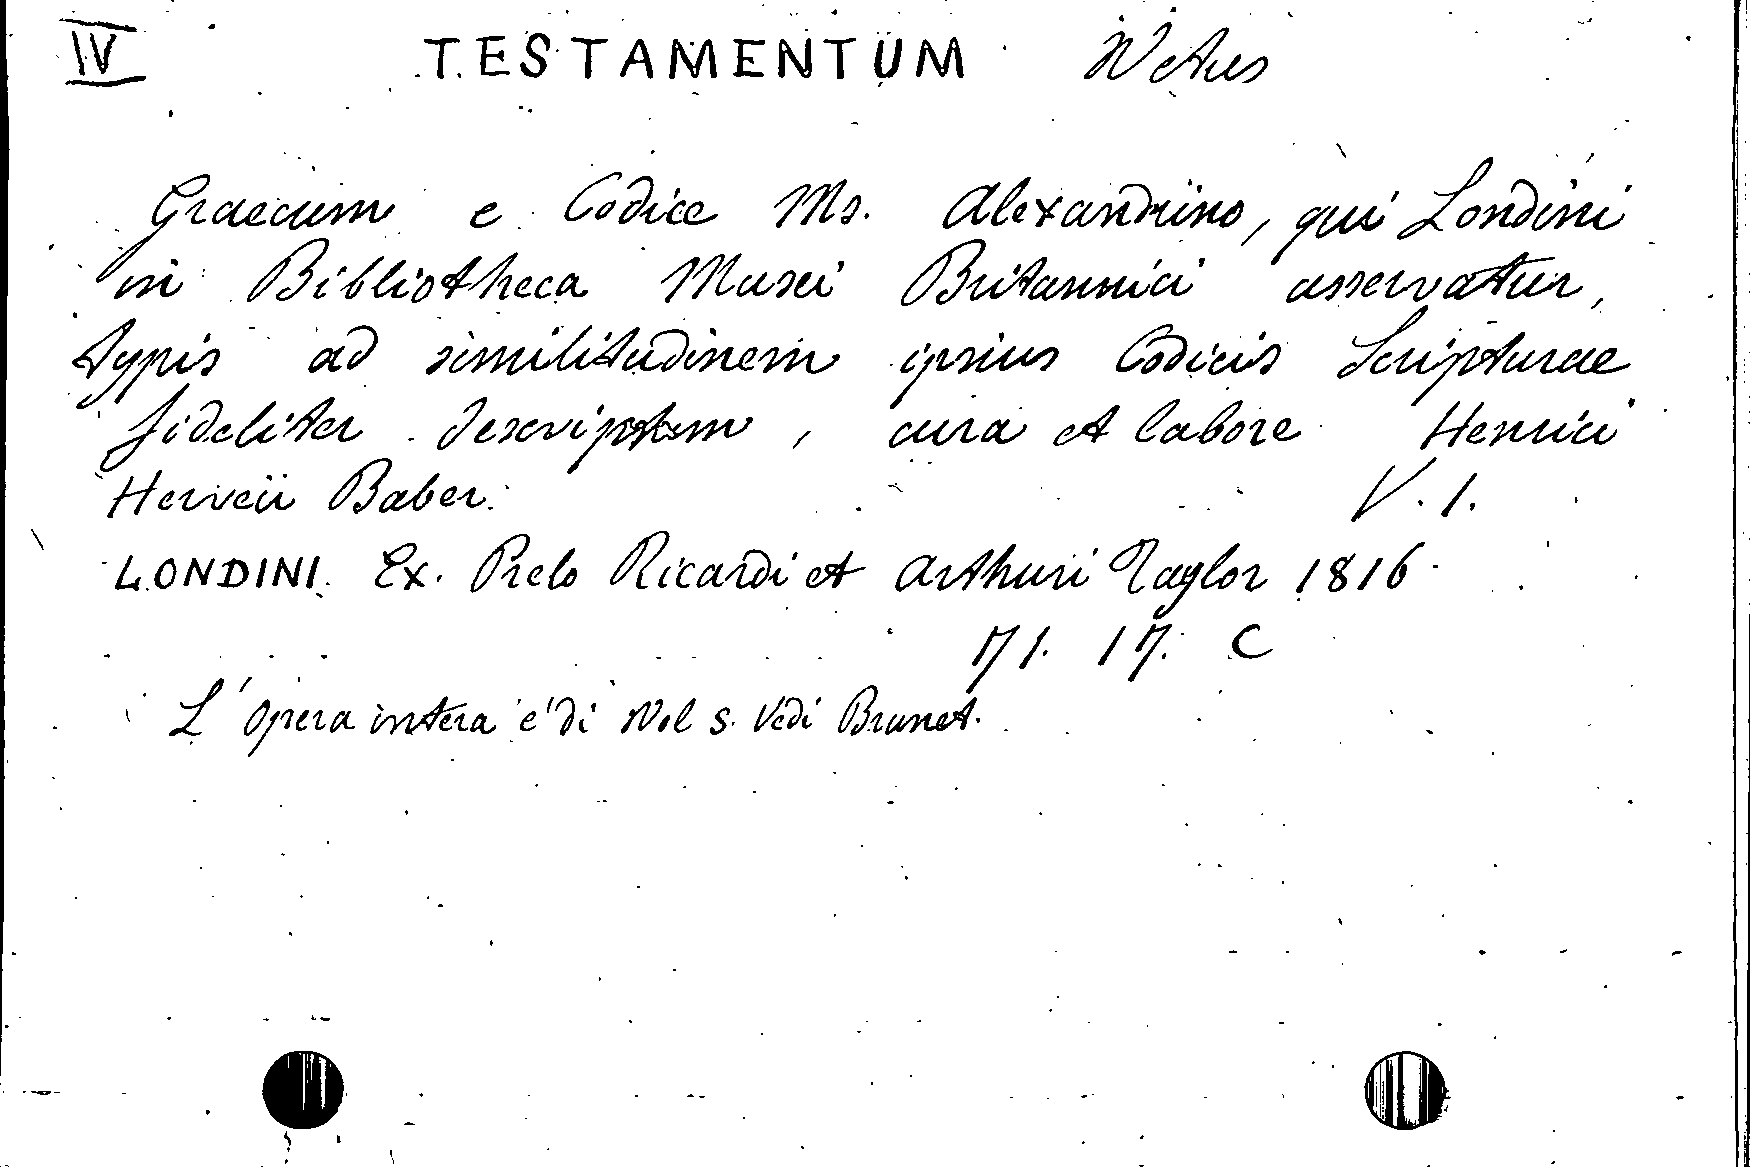 IV TESTAMENTUM Vetus
Graecum e Codice Ms. Alexandrino, qui Londini
in Bibliotheca Musei Britannici asservatur,
typis ad similitudinem ipsius Codicis Scripturae
fideliter descriptum, cura et labore Henrici
Herveii Baber. V. 1.
LONDINI. Ex. Prelo Ricardi et Arthuri Taylor 1816
71. 17. C
L'opera intera e' di Vol 5. Vedi Brunet.